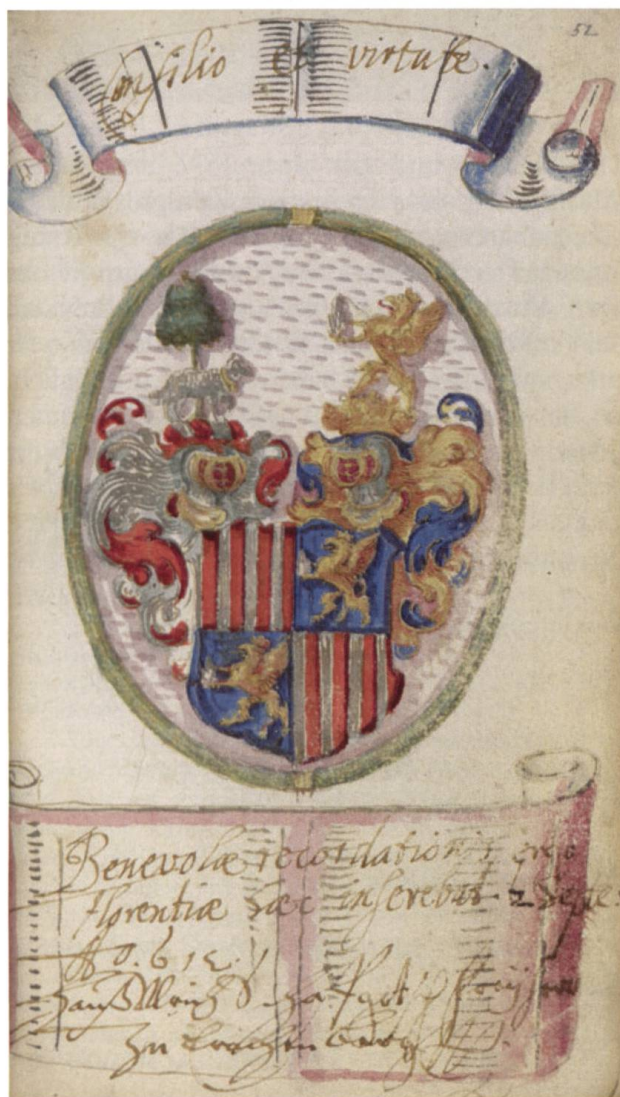 52
Consilio et virtute.
Benevolæ recordationis ergo
Florentiæ hæc inserebat 2 Septe:
Aº. 612.
Hanß Ulrich S
Zu